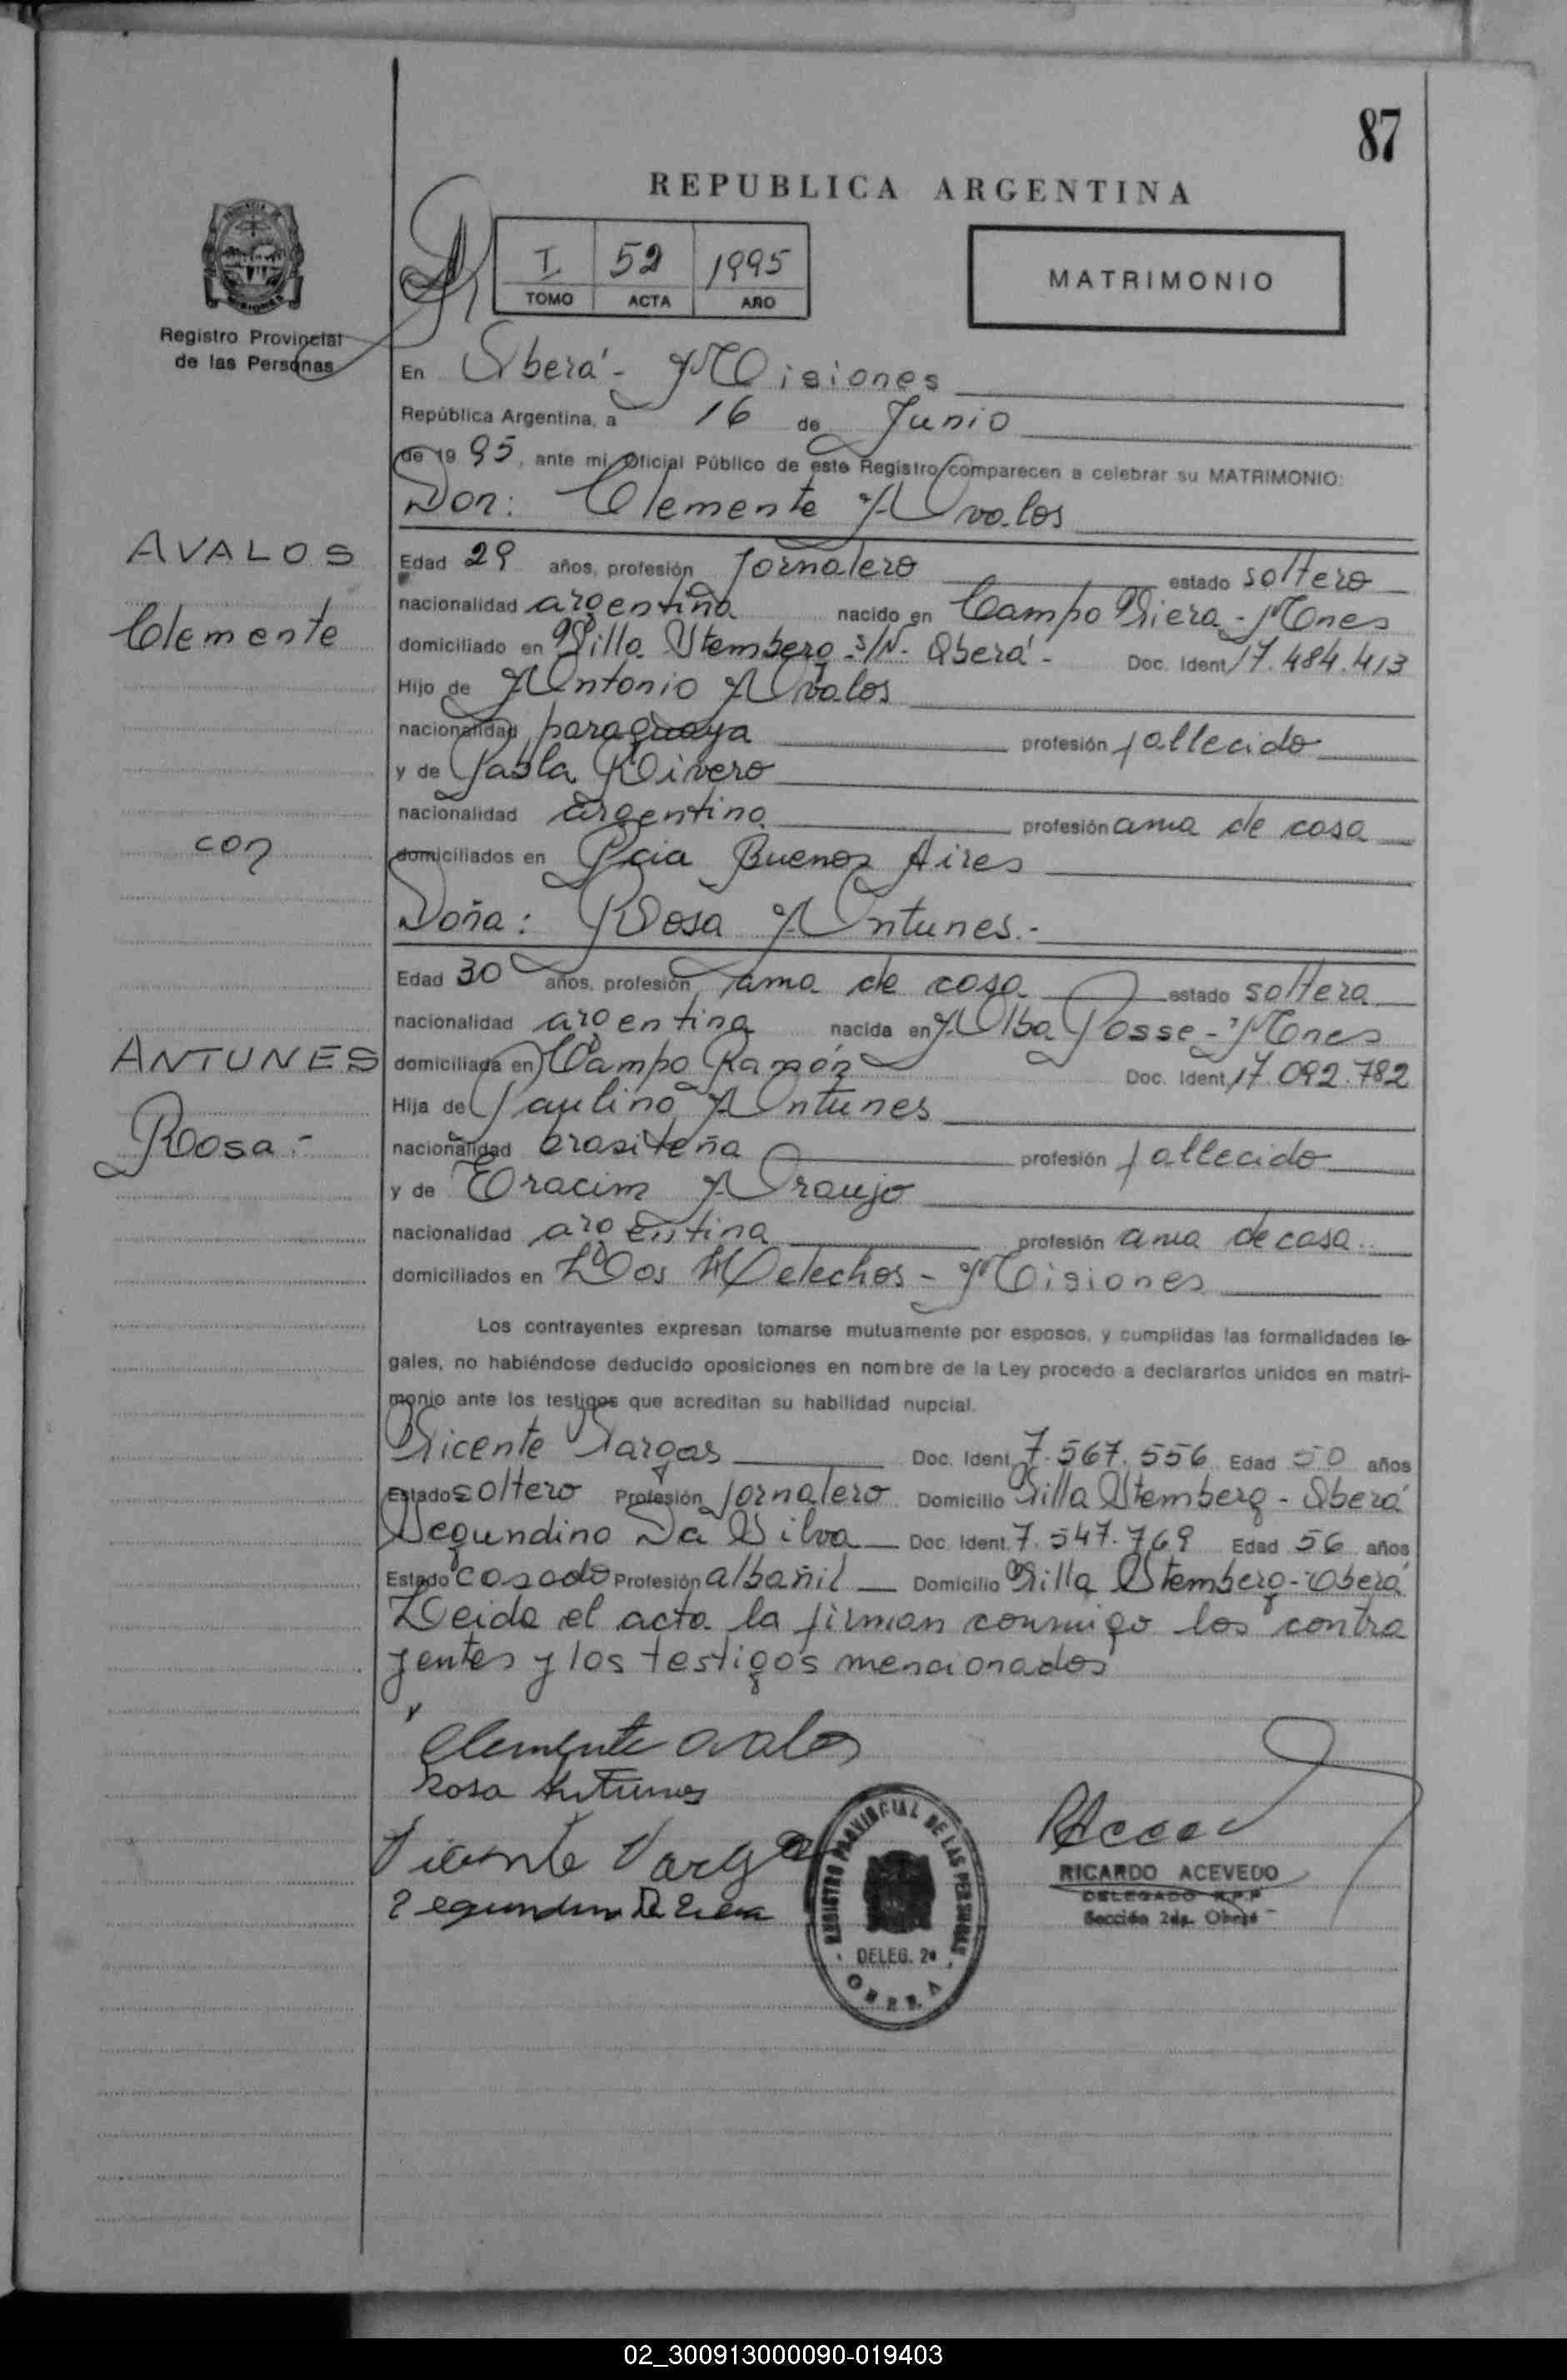 87
REPUBLICA ARGENTINA
I 52 1995
TOMO ACTA AÑO
MATRIMONIO
Registro Provincial
de las Personas
En Oberá - Misiones
República Argentina, a 16 de Junio
de 1995, ante mi Oficial Público de este Registro comparecen a celebrar su MATRIMONIO:
Don: Clemente Avalos
AVALOS
Clemente
con
ANTUNES
Rosa.-
Edad 29 años, profesión Jornalero estado soltero
nacionalidad argentina nacido en Campo Viera - Mnes
domiciliado en Villa Stemberg - S/N - Oberá - Doc. Ident. 17.484.413
Hijo de Antonio Avalos
nacionalidad paraguaya profesión fallecido
y de Pabla Rivero
nacionalidad argentina profesión ama de casa
domiciliados en Pcia Buenos Aires
Doña: Rosa Antunes.-
Edad 30 años, profesión ama de casa estado soltera
nacionalidad argentina nacida en Alba Posse - Mnes
domiciliada en Campo Ramón Doc. Ident. 17.092.782
Hija de Paulino Antunes
nacionalidad brasileña profesión fallecido
y de Eracim Araujo
nacionalidad argentina profesión ama de casa
domiciliados en Los Helechos - Misiones
Los contrayentes expresan tomarse mutuamente por esposos, y cumplidas las formalidades le-
gales, no habiéndose deducido oposiciones en nombre de la Ley procedo a declararlos unidos en matri-
monio ante los testigos que acreditan su habilidad nupcial.
Vicente Vargas Doc. Ident. 7.567.556 Edad 50 años
Estado soltero Profesión Jornalero Domicilio Villa Stemberg - Oberá
Segundino Da Silva Doc. Ident. 7.547.769 Edad 56 años
Estado casado Profesión albañil Domicilio Villa Stemberg - Oberá
Leida el acta la firman conmigo los contra
yentes y los testigos mencionados
Clemente avalos
Rosa Antunes
Vicente Vargas
Segundino Da Silva
REGISTRO PROVINCIAL DE LAS PERSONAS
DELEG. 2a
OBERA
RICARDO ACEVEDO
DELEGADO R.P.P
Sección 2da. Oberá
02_300913000090-019403